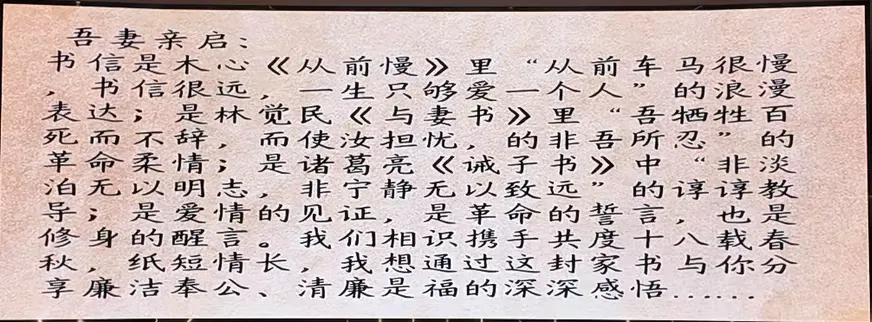 吾妻亲启：
书信是木心《从前慢》里“从前车马很慢
，书信很远，一生只够爱一个人”的浪漫
表达；是林觉民《与妻书》里“吾牺牲百
死而不辞，而使汝担忧，的非吾所忍”的
革命柔情；是诸葛亮《诫子书》中“非淡
泊无以明志，非宁静无以致远”的谆谆教
导；是爱情的见证，是革命的誓言，也是
修身的醒言。我们相识携手共度十八载春
秋，纸短情长，我想通过这封家书与你分
享廉洁奉公、清廉是福的深深感悟……